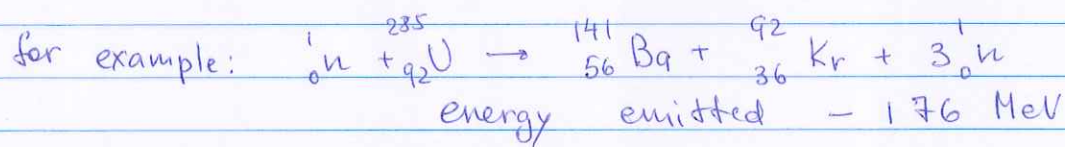 for example: ¹₀n + ²³⁵₉₂U → ¹⁴¹₅₆Ba + ⁹²₃₆Kr + 3¹₀n
energy emitted – 176 MeV